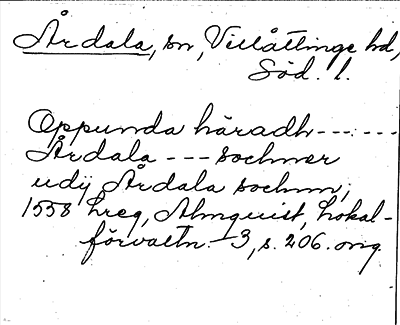 Årdala, sn, Villåttinge hd,
Söd. l.
Oppunda häradh ------
Årdala --- sochner
udij Årdala sochnn;
1558 hreg, Almquist, Lokal-
förvaltn. 3, s. 206. orig.